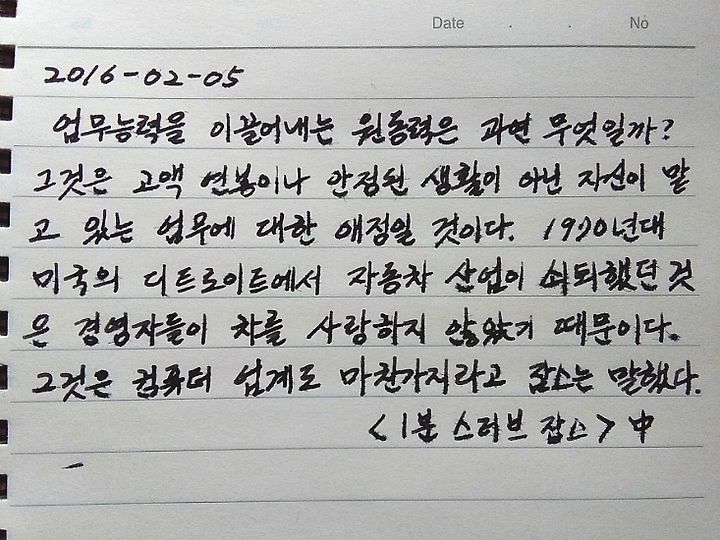 Date . . No
2016-02-05
업무능력을 이끌어내는 원동력은 과연 무엇일까?
그것은 고액 연봉이나 안정된 생활이 아닌 자신이 맡
고 있는 업무에 대한 애정일 것이다. 1970년대
미국의 디트로이트에서 자동차 산업이 쇠퇴했던 것
은 경영자들이 차를 사랑하지 않았기 때문이다.
그것은 컴퓨터 업계도 마찬가지라고 잡스는 말했다.
<1분 스티브 잡스> 中